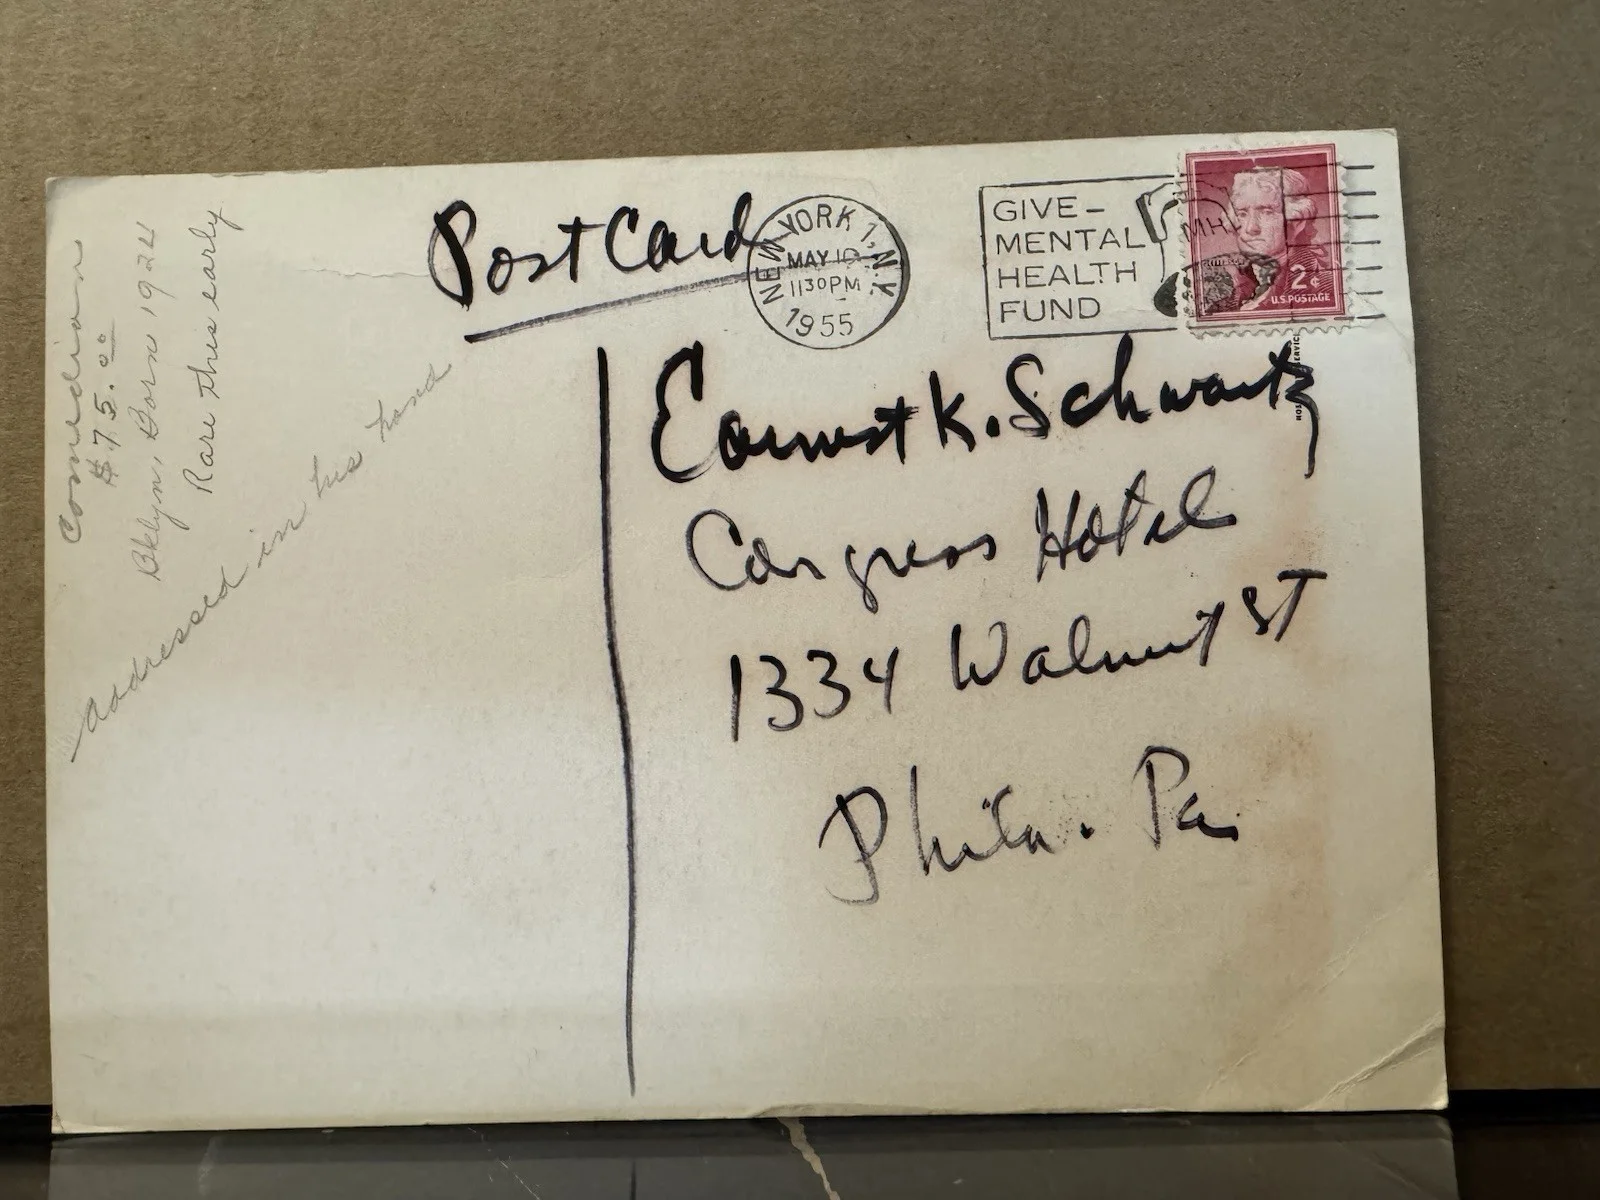 Post Card
NEW YORK 1, N.Y.
MAY 10
1130 PM
1955
GIVE-
MENTAL
HEALTH
FUND
MH
2¢
U.S. POSTAGE
Earnest K. Schwartz
Congress Hotel
1334 Walnut ST
Phila. Pa.
Comedian
$75.00
Bklyn, Born 1924
Rare this early
Addressed in his hand